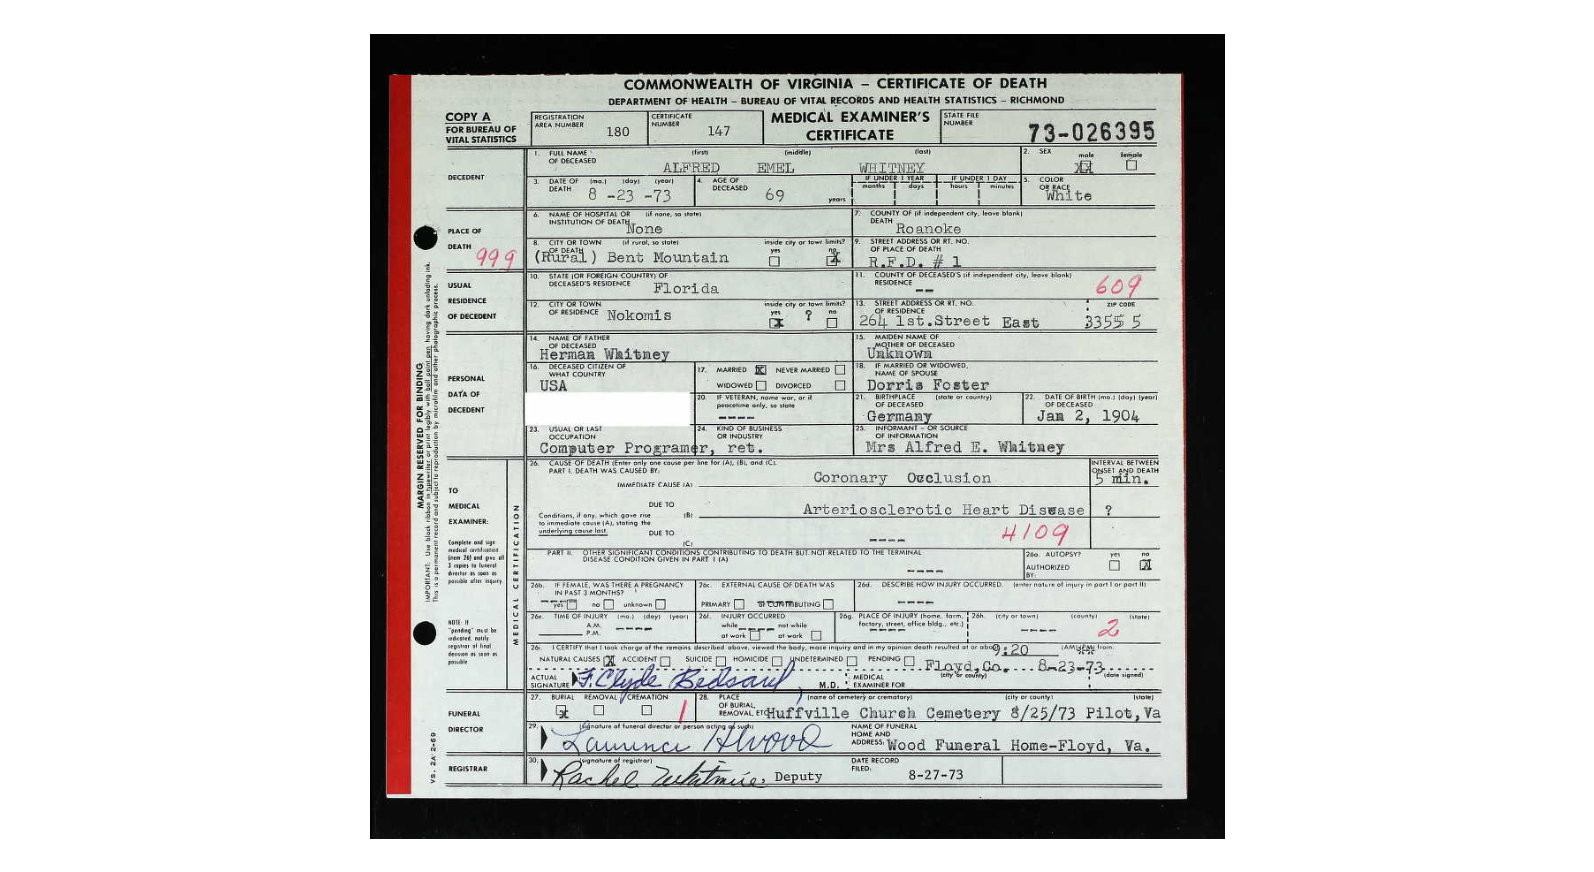 COMMONWEALTH OF VIRGINIA – CERTIFICATE OF DEATH
DEPARTMENT OF HEALTH – BUREAU OF VITAL RECORDS AND HEALTH STATISTICS – RICHMOND
COPY A
FOR BUREAU OF
VITAL STATISTICS
REGISTRATION AREA NUMBER 180
CERTIFICATE NUMBER 147
MEDICAL EXAMINER'S
CERTIFICATE
STATE FILE NUMBER 73-026395
DECEDENT
1. FULL NAME OF DECEASED (first) (middle) (last)
ALFRED EMEL WHITNEY
2. SEX male XX female
3. DATE OF DEATH (mo.) (day) (year) 8 -23 -73
4. AGE OF DECEASED 69 years
IF UNDER 1 YEAR months days
IF UNDER 1 DAY hours minutes
5. COLOR OR RACE White
PLACE OF
DEATH
999
6. NAME OF HOSPITAL OR INSTITUTION OF DEATH (if none, so state) None
7. COUNTY OF DEATH (if independent city, leave blank) Roanoke
8. CITY OR TOWN OF DEATH (if rural, so state) (Rural) Bent Mountain
inside city or town limits? yes no X
9. STREET ADDRESS OR RT. NO. OF PLACE OF DEATH R.F.D. # 1
USUAL
RESIDENCE
OF DECEDENT
10. STATE (OR FOREIGN COUNTRY) OF DECEASED'S RESIDENCE Florida
11. COUNTY OF DECEASED'S RESIDENCE (if independent city, leave blank) --
609
12. CITY OR TOWN OF RESIDENCE Nokomis
inside city or town limits? yes X ? no
13. STREET ADDRESS OR RT. NO. OF RESIDENCE 264 1st.Street East
ZIP CODE 33555
PERSONAL
DATA OF
DECEDENT
14. NAME OF FATHER OF DECEASED Herman Whitney
15. MAIDEN NAME OF MOTHER OF DECEASED Unknown
16. DECEASED CITIZEN OF WHAT COUNTRY USA
17. MARRIED X NEVER MARRIED
WIDOWED DIVORCED
18. IF MARRIED OR WIDOWED, NAME OF SPOUSE Dorris Foster
20. IF VETERAN, name war, or if peacetime only, so state ----
21. BIRTHPLACE OF DECEASED (state or country) Germany
22. DATE OF BIRTH OF DECEASED (mo.) (day) (year) Jan 2, 1904
23. USUAL OR LAST OCCUPATION Computer Programer, ret.
24. KIND OF BUSINESS OR INDUSTRY
25. INFORMANT – OR SOURCE OF INFORMATION Mrs Alfred E. Whitney
TO
MEDICAL
EXAMINER:
Complete and sign
medical certification
(item 26) and give all
3 copies to funeral
director as soon as
possible after inquiry.
NOTE: If
"pending" must be
indicated, notify
registrar of final
decision as soon as
possible
MEDICAL CERTIFICATION
26. CAUSE OF DEATH (Enter only one cause per line for (A), (B), and (C).
PART I. DEATH WAS CAUSED BY:
INTERVAL BETWEEN ONSET AND DEATH
IMMEDIATE CAUSE (A) Coronary Occlusion 5 min.
Conditions, if any, which gave rise
to immediate cause (A), stating the
underlying cause last.
DUE TO (B) Arteriosclerotic Heart Disease ?
DUE TO (C) ----
4109
PART II. OTHER SIGNIFICANT CONDITIONS CONTRIBUTING TO DEATH BUT NOT RELATED TO THE TERMINAL
DISEASE CONDITION GIVEN IN PART I (A) ----
26a. AUTOPSY? yes no X
AUTHORIZED BY:
26b. IF FEMALE, WAS THERE A PREGNANCY IN PAST 3 MONTHS? yes no unknown
26c. EXTERNAL CAUSE OF DEATH WAS
PRIMARY or CONTRIBUTING
26d. DESCRIBE HOW INJURY OCCURRED. (enter nature of injury in part I or part II) ----
26e. TIME OF INJURY (mo.) (day) (year) A.M. P.M. ----
26f. INJURY OCCURRED while at work not while at work
26g. PLACE OF INJURY (home, farm, factory, street, office bldg., etc.) ----
26h. (city or town) (county) (state) ----
2
26i. I CERTIFY that I took charge of the remains described above, viewed the body, made inquiry and in my opinion death resulted at or about 9:20 (AM) from:
NATURAL CAUSES X ACCIDENT SUICIDE HOMICIDE UNDETERMINED PENDING
Floyd,Co. 8-23-73
ACTUAL SIGNATURE F. Clyde Bedsaul M.D.
MEDICAL EXAMINER FOR (city or county) (date signed)
FUNERAL
DIRECTOR
27. BURIAL X REMOVAL CREMATION
1
28. PLACE OF BURIAL, REMOVAL, ETC. (name of cemetery or crematory) (city or county) (state)
Huffville Church Cemetery 8/25/73 Pilot,Va
29. (signature of funeral director or person acting as such)
NAME OF FUNERAL HOME AND ADDRESS: Wood Funeral Home-Floyd, Va.
REGISTRAR
30. (signature of registrar)
Rachel Whitmire, Deputy
DATE RECORD FILED: 8-27-73
MARGIN RESERVED FOR BINDING
IMPORTANT: Use black ribbon in typewriter or print legibly with ball point pen having dark unfading ink.
This is a permanent record and subject to reproduction by microfilm and other photographic process.
VS. 2A 2-69